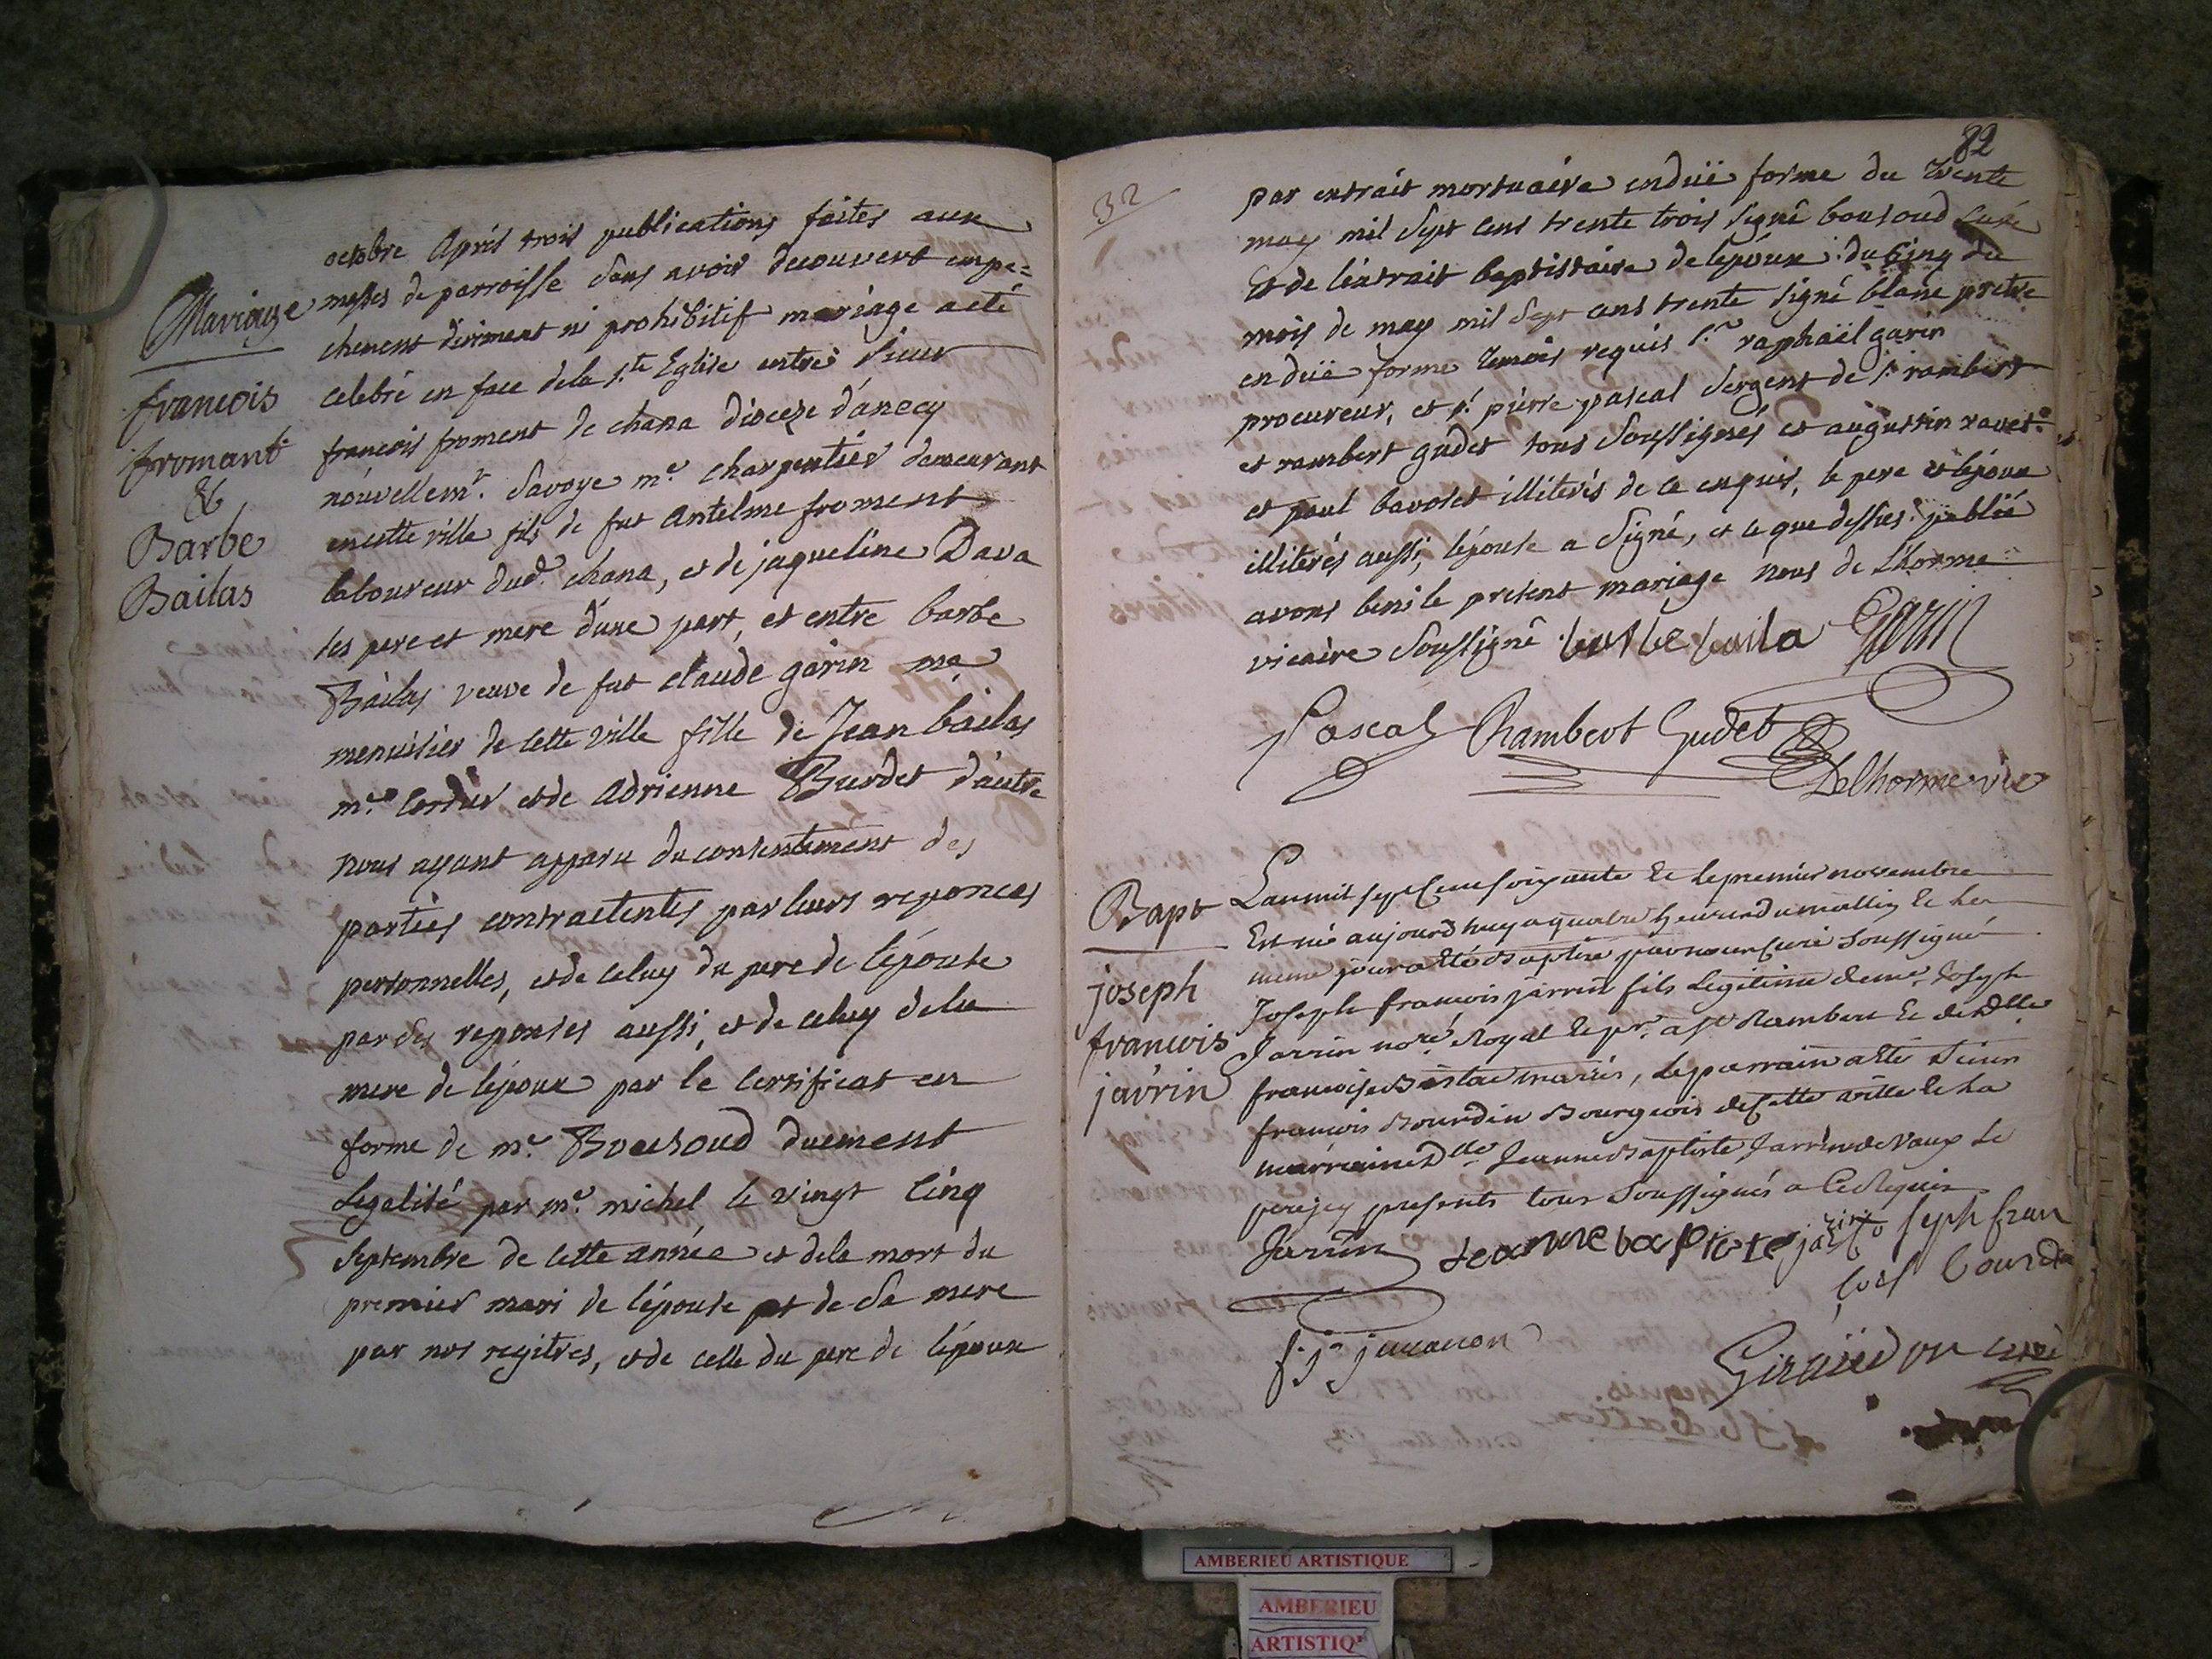 Mariage
françois
fromant
&
Barbe
Bailas
octobre après trois publications faites aux
messes de parroisse sans avoir decouvert empe=
chement dirimant ni prohibitif mariage a eté
celebré en face de la s.te Eglise entre sieur
françois froment de chana dioceze d'anecy
nouvellem.t Savoye m.e charpentier demeurant
en cette ville fils de fut Antelme froment
laboureur dud.t chana, et de jaqueline Dava
ses pere et mere d'une part, et entre barbe
Bailas veuve de fut claude garin me
menuisier de cette ville fille de Jean bailas
m.e cordier et de Adrienne Burdet d'autre
nous ayant apparu du consentement des
parties contractentes par leurs reponces
personnelles, et de celuy du pere de l'épouse
par des reponses aussi, et de celuy de la
mere de l'époux par le certificat en
forme de m.e Bouhoud duement
legalisé par m.e michel le vingt cinq
septembre de cette année et de la mort du
premier mari de l'épouse et de sa mere
par nos regitres, et de celle du pere de l'époux
32
82
par extrait mortuaire en düe forme du trente
may mil sept cens trente trois signé bouhoud curé
et de l'extrait baptistaire de l'époux du cinq du
mois de may mil sept cens trente signé blanc pretre
en düe forme temoins requis s.r raphaël garin
procureur, et s.r pierre pascal sergent de s.t rambert
et rambert gudet tous soussignés et augustin ravet
et paul bavoset illiterés de ce enquis, le pere et l'époux
illiterés aussi, l'épouse a signé, et ce que dessus publié
avons beni le present mariage nous de Lhorme
vicaire soussigné barbe baila Garin
Pascal Rambert Gudet
Delhorme vic
Bapt
joseph
francois
jarrin
L'an mil sept cens soixante et le premier novembre
Est né aujourdhuy a quatre heures du mattin et le
meme jour a eté baptisé par nous curé soussigné
Joseph françois jarrin fils legitime de me. Joseph
Jarrin no.re Royal et pr. a S.t Rambert et de d.lle
françoise mariés, le parrain a eté sieur
françois Bourdin Bourgeois de cette ville et la
marraine d.lle Jeanne Baptiste Jarrin de vaux le
presents tous soussignés a ce requis
Jarrin Jeanne baptiste jarin joseph fran
cois bourdin
Giraudon curé
AMBERIEU ARTISTIQUE
AMBERIEU
ARTISTIQ